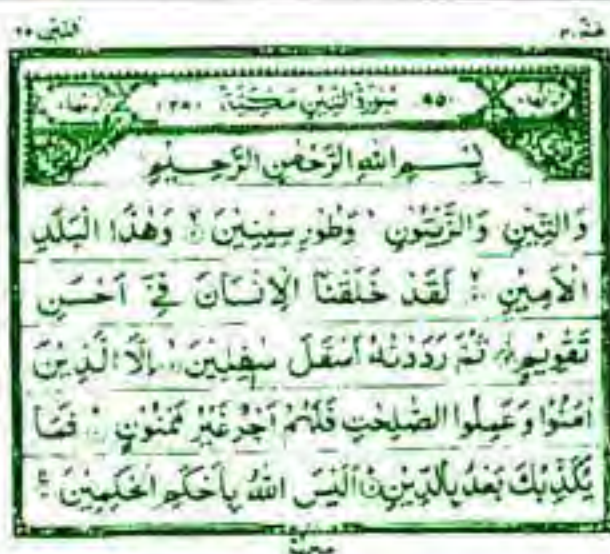 عمّ ۳۰ التین ۹۵
سُوْرَةُ التِّيْنِ مَكِّيَّةٌ
بِسْمِ اللهِ الرَّحْمٰنِ الرَّحِيْمِ
وَالتِّيْنِ وَالزَّيْتُوْنِ وَطُوْرِ سِيْنِيْنَ وَهٰذَا الْبَلَدِ
الْاَمِيْنِ لَقَدْ خَلَقْنَا الْاِنْسَانَ فِيْٓ اَحْسَنِ
تَقْوِيْمٍ ثُمَّ رَدَدْنٰهُ اَسْفَلَ سٰفِلِيْنَ اِلَّا الَّذِيْنَ
اٰمَنُوْا وَعَمِلُوا الصّٰلِحٰتِ فَلَهُمْ اَجْرٌ غَيْرُ مَمْنُوْنٍ فَمَا
يُكَذِّبُكَ بَعْدُ بِالدِّيْنِ اَلَيْسَ اللهُ بِاَحْكَمِ الْحٰكِمِيْنَ